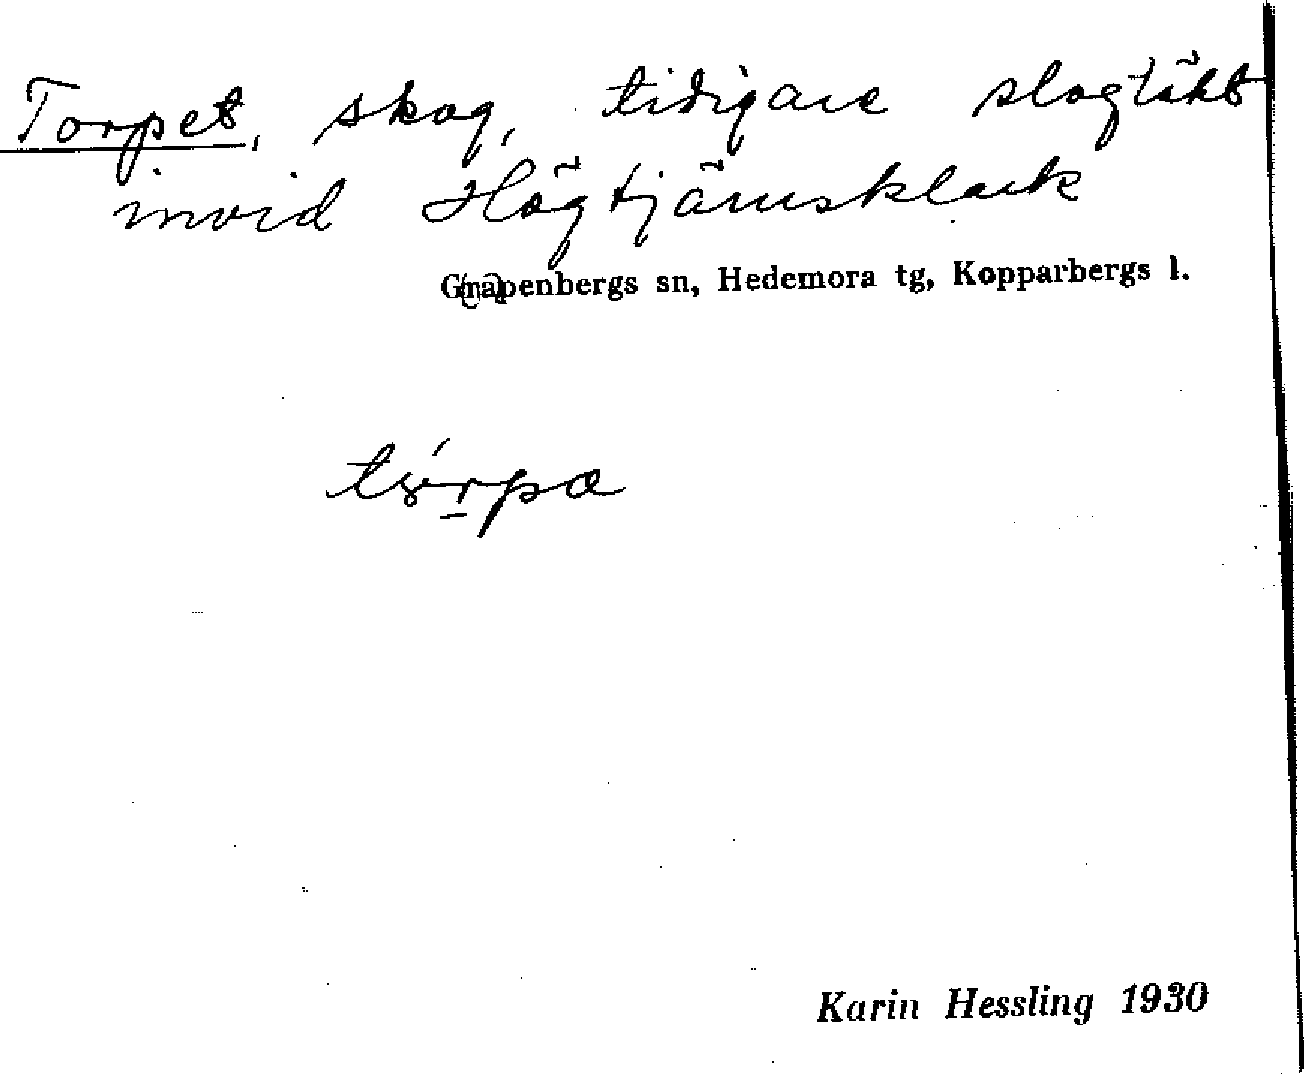 Torpet, skog, tidigare slogtäkt
invid Högtjärnsklack
G(na)penbergs sn, Hedemora tg, Kopparbergs l.
Karin Hessling 1930